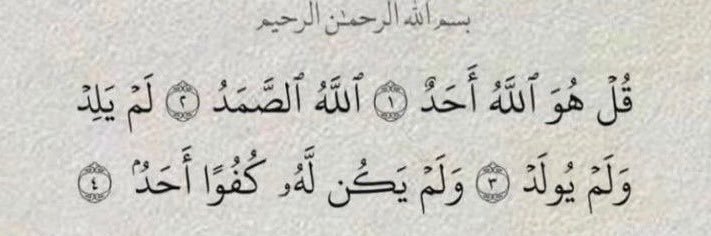 بسم الله الرحمٰن الرحيم
قُلۡ هُوَ ٱللَّهُ أَحَدٌ ١ ٱللَّهُ ٱلصَّمَدُ ٢ لَمۡ يَلِدۡ
وَلَمۡ يُولَدۡ ٣ وَلَمۡ يَكُن لَّهُۥ كُفُوًا أَحَدُۢ ٤